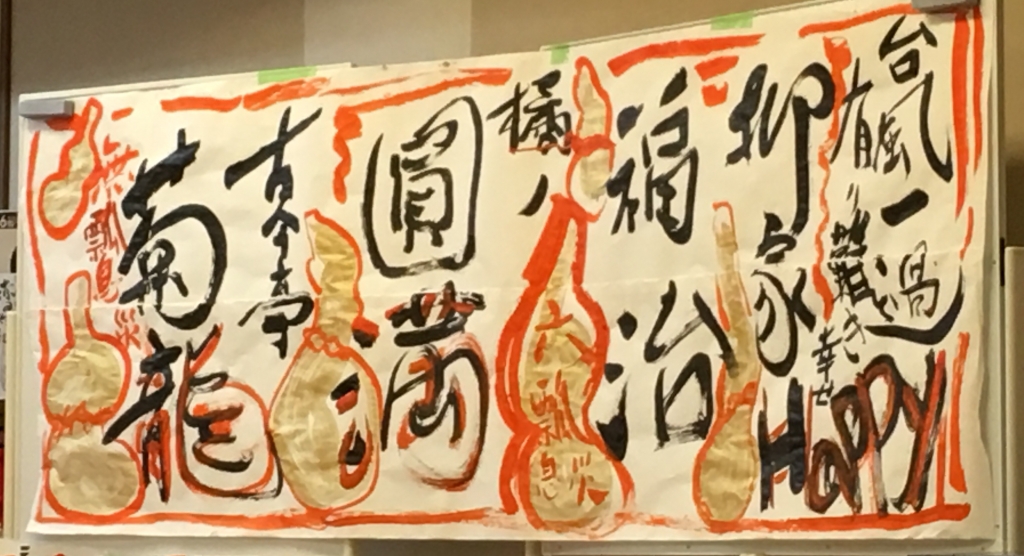 台風一過
有難き幸せ
Happy
柳家
福治
橘ノ
圓満
六瓢息災
古今亭
菊龍
無瓢息災